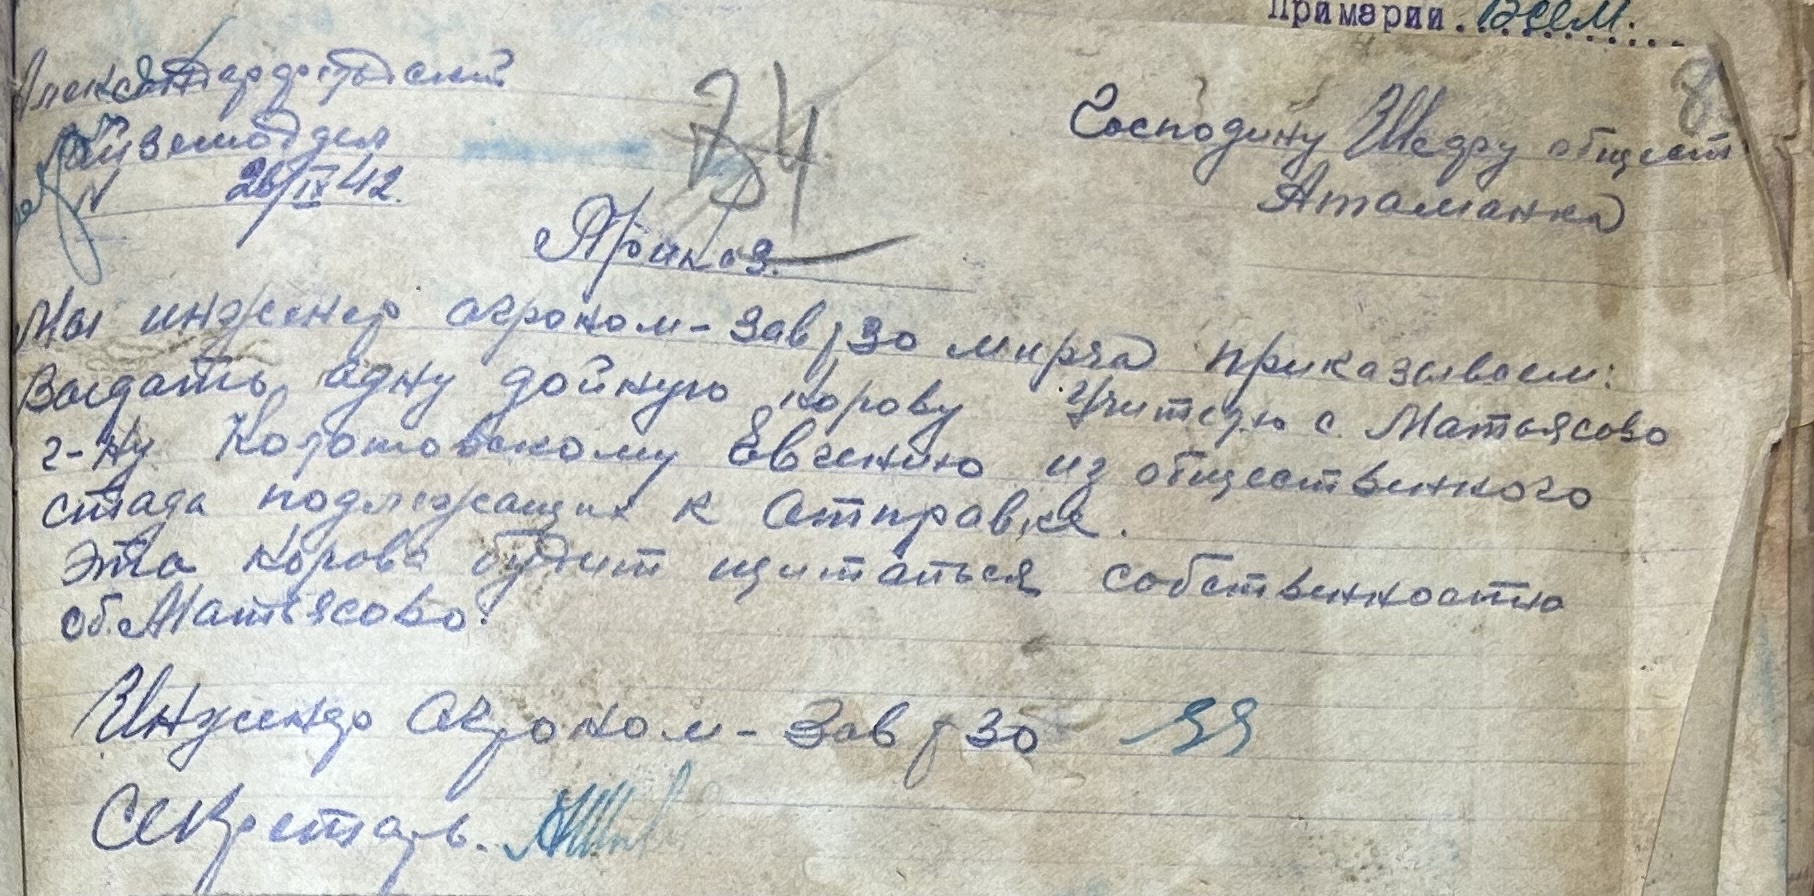 Примарии. Всем.
Александердорфский
Райземотдел
N 26/IX 42.
34
8
Господину Шефу общест
Атаманка
Приказ.
Мы инженер агроном-завРЗО мирча приказываем:
Выдать одну дойную корову Учителю с. Матьясово
г-ну Колотовскому Евгению из общественного
стада подлежащих к отправке.
Эта корова будит щитаться собственностю
об. Матьясово.
Инженер агроном-завРЗО
Секретарь.